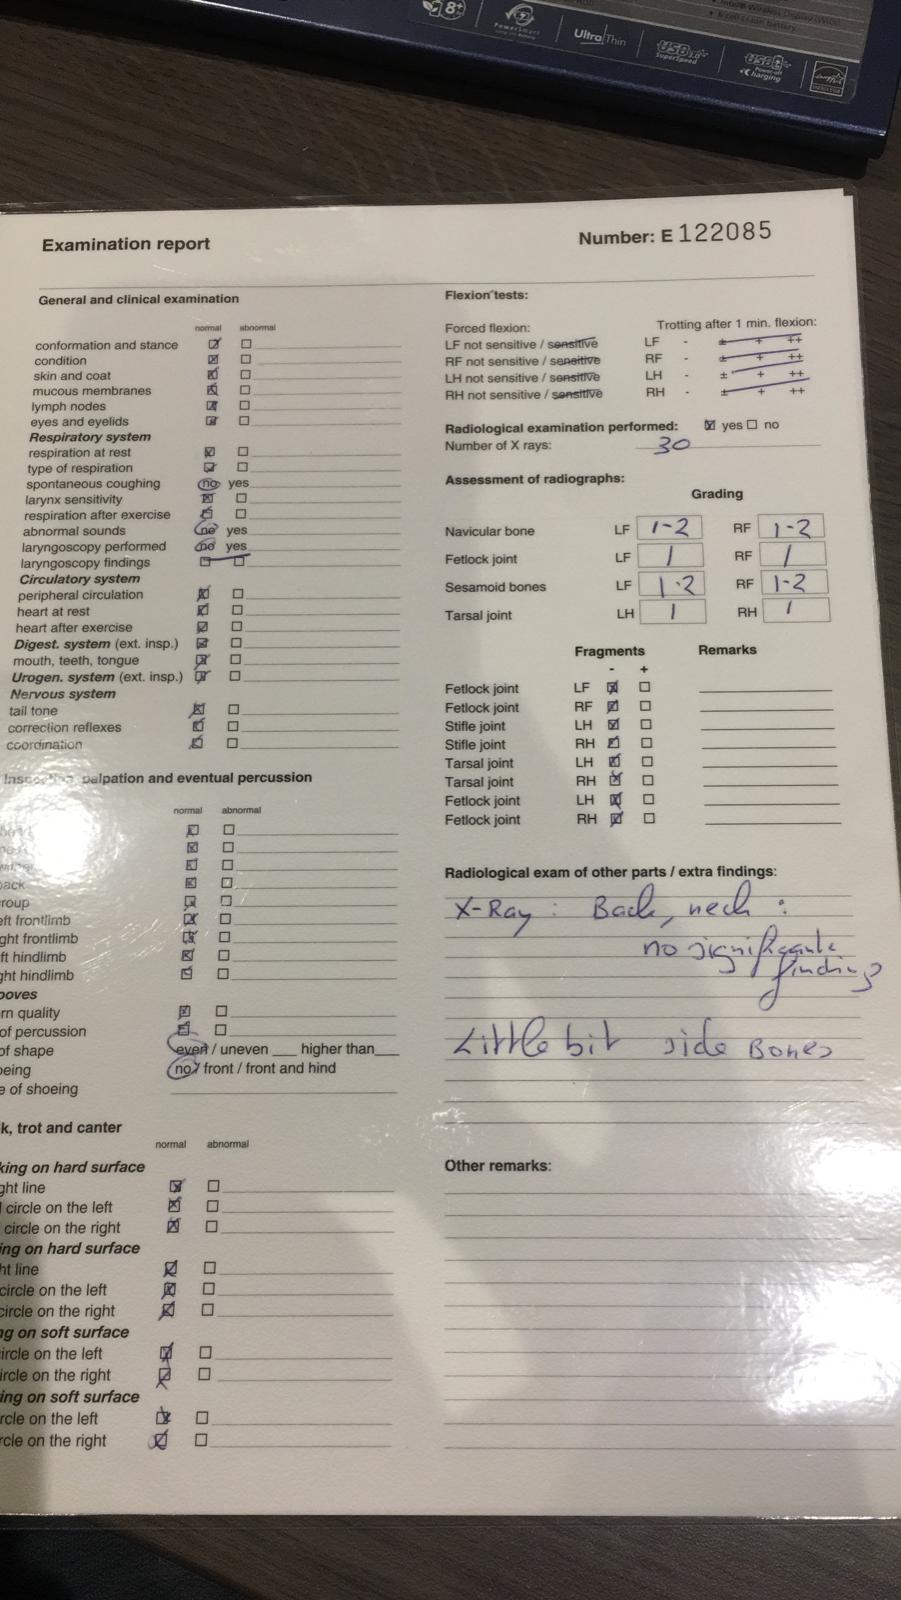 8+
PowerSmart
Ultra Thin
USB 3.0
SuperSpeed
USB
Power-off
Charging
ENERGY STAR
Examination report
Number: E 122085
General and clinical examination
normal abnormal
conformation and stance
condition
skin and coat
mucous membranes
lymph nodes
eyes and eyelids
Respiratory system
respiration at rest
type of respiration
spontaneous coughing no yes
larynx sensitivity
respiration after exercise
abnormal sounds no yes
laryngoscopy performed no yes
laryngoscopy findings
Circulatory system
peripheral circulation
heart at rest
heart after exercise
Digest. system (ext. insp.)
mouth, teeth, tongue
Urogen. system (ext. insp.)
Nervous system
tail tone
correction reflexes
coordination
palpation and eventual percussion
normal abnormal
back
roup
eft frontlimb
ght frontlimb
ft hindlimb
ght hindlimb
ooves
rn quality
of percussion
of shape even / uneven ___ higher than___
eing no / front / front and hind
e of shoeing
k, trot and canter
normal abnormal
king on hard surface
ght line
circle on the left
circle on the right
ing on hard surface
ht line
circle on the left
circle on the right
ng on soft surface
ircle on the left
ircle on the right
ring on soft surface
rcle on the left
rcle on the right
Flexion tests:
Forced flexion: Trotting after 1 min. flexion:
LF not sensitive / sensitive LF - ± + ++
RF not sensitive / sensitive RF - ± + ++
LH not sensitive / sensitive LH - ± + ++
RH not sensitive / sensitive RH - ± + ++
Radiological examination performed: yes no
Number of X rays: 30
Assessment of radiographs:
Grading
Navicular bone LF 1-2 RF 1-2
Fetlock joint LF 1 RF 1
Sesamoid bones LF 1-2 RF 1-2
Tarsal joint LH 1 RH 1
Fragments Remarks
- +
Fetlock joint LF
Fetlock joint RF
Stifle joint LH
Stifle joint RH
Tarsal joint LH
Tarsal joint RH
Fetlock joint LH
Fetlock joint RH
Radiological exam of other parts / extra findings:
X-Ray : Back, neck :
no significante
finding
Little bit side Bones
Other remarks: